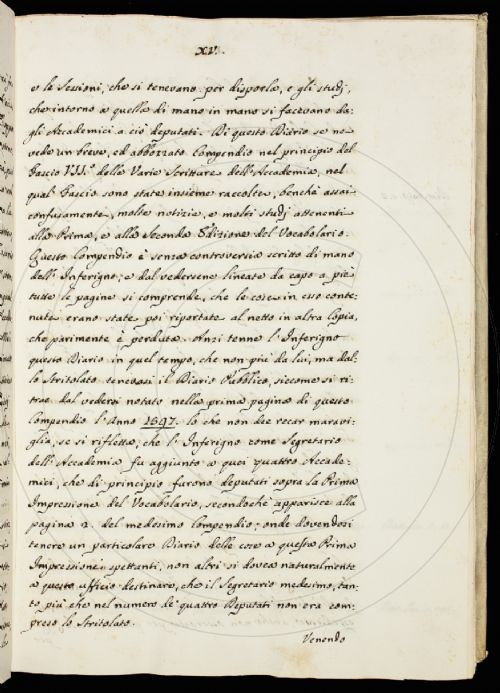 XV.
e le Sessioni, che si tenevano per disporla, e gli studj,
che intorno a quella di mano in mano si facevano da-
gli Accademici a ciò deputati. Di questo Diario se ne
vede un breve, ed abbozzato Compendio nel principio del
Fascio VII.º delle Varie Scritture dell'Accademia, nel
qual Fascio sono state insieme raccolte, benchè assai
confusamente, molte notizie, e molti studj attenenti
alla Prima, e alla Seconda Edizione del Vocabolario.
Questo Compendio è senza controversia scritto di mano
dell'Inferigno; e dal vedersene lineate da capo a piè
tutte le pagine si comprende, che le cose in esso conte-
nute erano state poi riportate al netto in altra Copia,
che parimente è perduta. Anzi tenne l'Inferigno
questo Diario in quel tempo, che non più da lui, ma dal-
lo Stritolato tenevasi il Diario Pubblico, siccome si ri-
trae dal vedersi notato nella prima pagina di questo
Compendio l'Anno 1597. lo che non dee recar maravi-
glia, se si rifletta, che l'Inferigno come Segretario
dell'Accademia fu aggiunto a quei quattro Accade-
mici, che di principio furono deputati sopra la Prima
Impressione del Vocabolario, secondochè apparisce alla
pagina 2. del medesimo Compendio; onde dovendosi
tenere un particolare Diario delle cose a questa Prima
Impressione spettanti, non altri si dovea naturalmente
a questo ufficio destinare, che il Segretario medesimo, tan-
to più che nel numero de' quattro Deputati non era com-
preso lo Stritolato.
Venendo